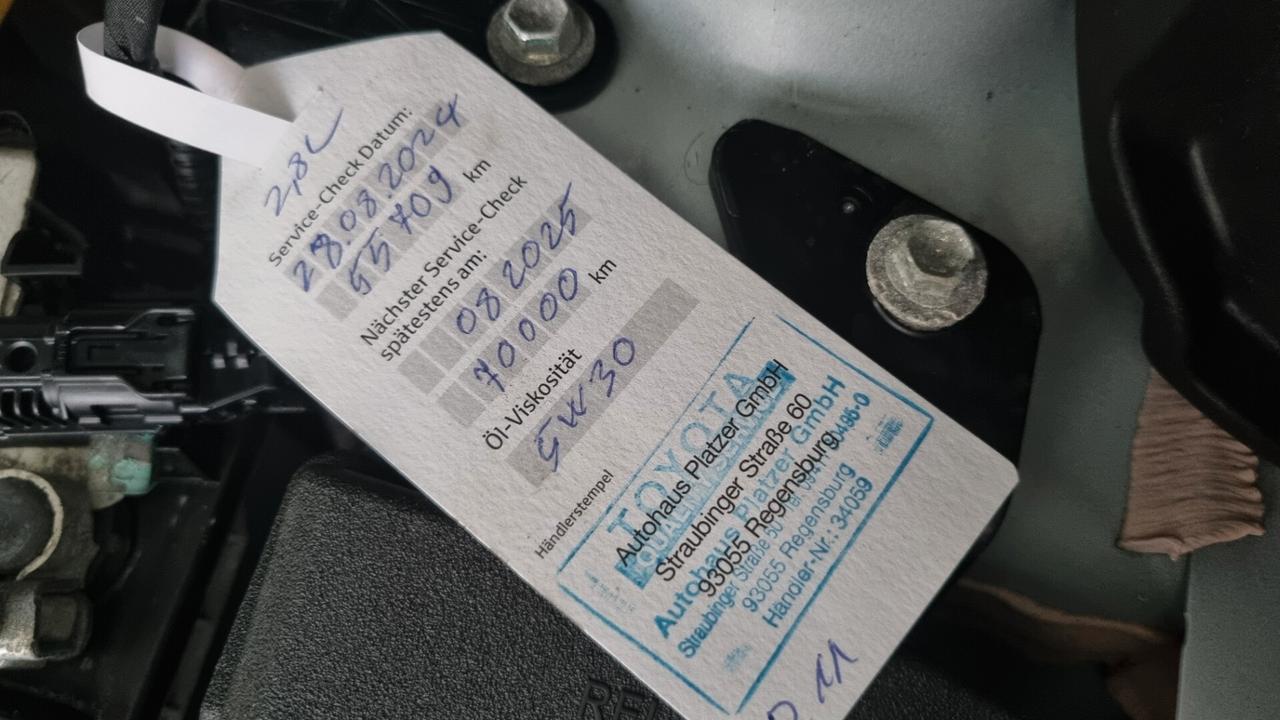 2,8L
Service-Check Datum:
28.08.2024
55 709 km
Nächster Service-Check
spätestens am:
08 2025
70000 km
Öl-Viskosität
5W30
Händlerstempel
TOYOTA
Autohaus Platzer GmbH
Straubinger Straße 60
93055 Regensburg
Autohaus Platzer GmbH
Straubinger Straße
93055 Regensburg
Händler-Nr.: 34059